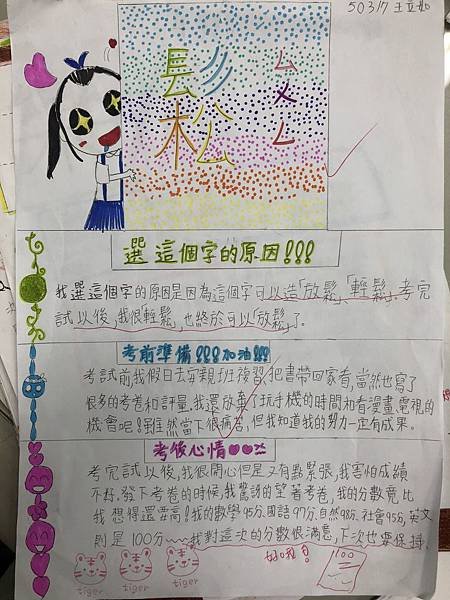 50317 王立如
鬆 ㄙㄨㄥ
選這個字的原因!!!
我選這個字的原因是因為這個字可以造「放鬆」、「輕鬆」,考完
試以後,我很「輕鬆」,也終於可以「放鬆」了。
考前準備!!!加油!!!
考試前我假日去母親班複習,把書帶回家看,當然也寫了
很多的考卷和評量,我還放棄了玩手機的時間和看漫畫、電視的
機會呢!雖然當下很痛苦,但我知道我的努力一定有成果。
考後心情
考完試以後,我很開心但是又有點緊張,我害怕成績
不好,發下考卷的時候,我驚訝的望著考卷,我的分數竟比
我想得還要高!我的數學95分、國語97分、自然98分、社會95分,英文
則是100分~~~我對這次的分數很滿意,下次也要保持。
好耶!
100
tiger tiger tiger